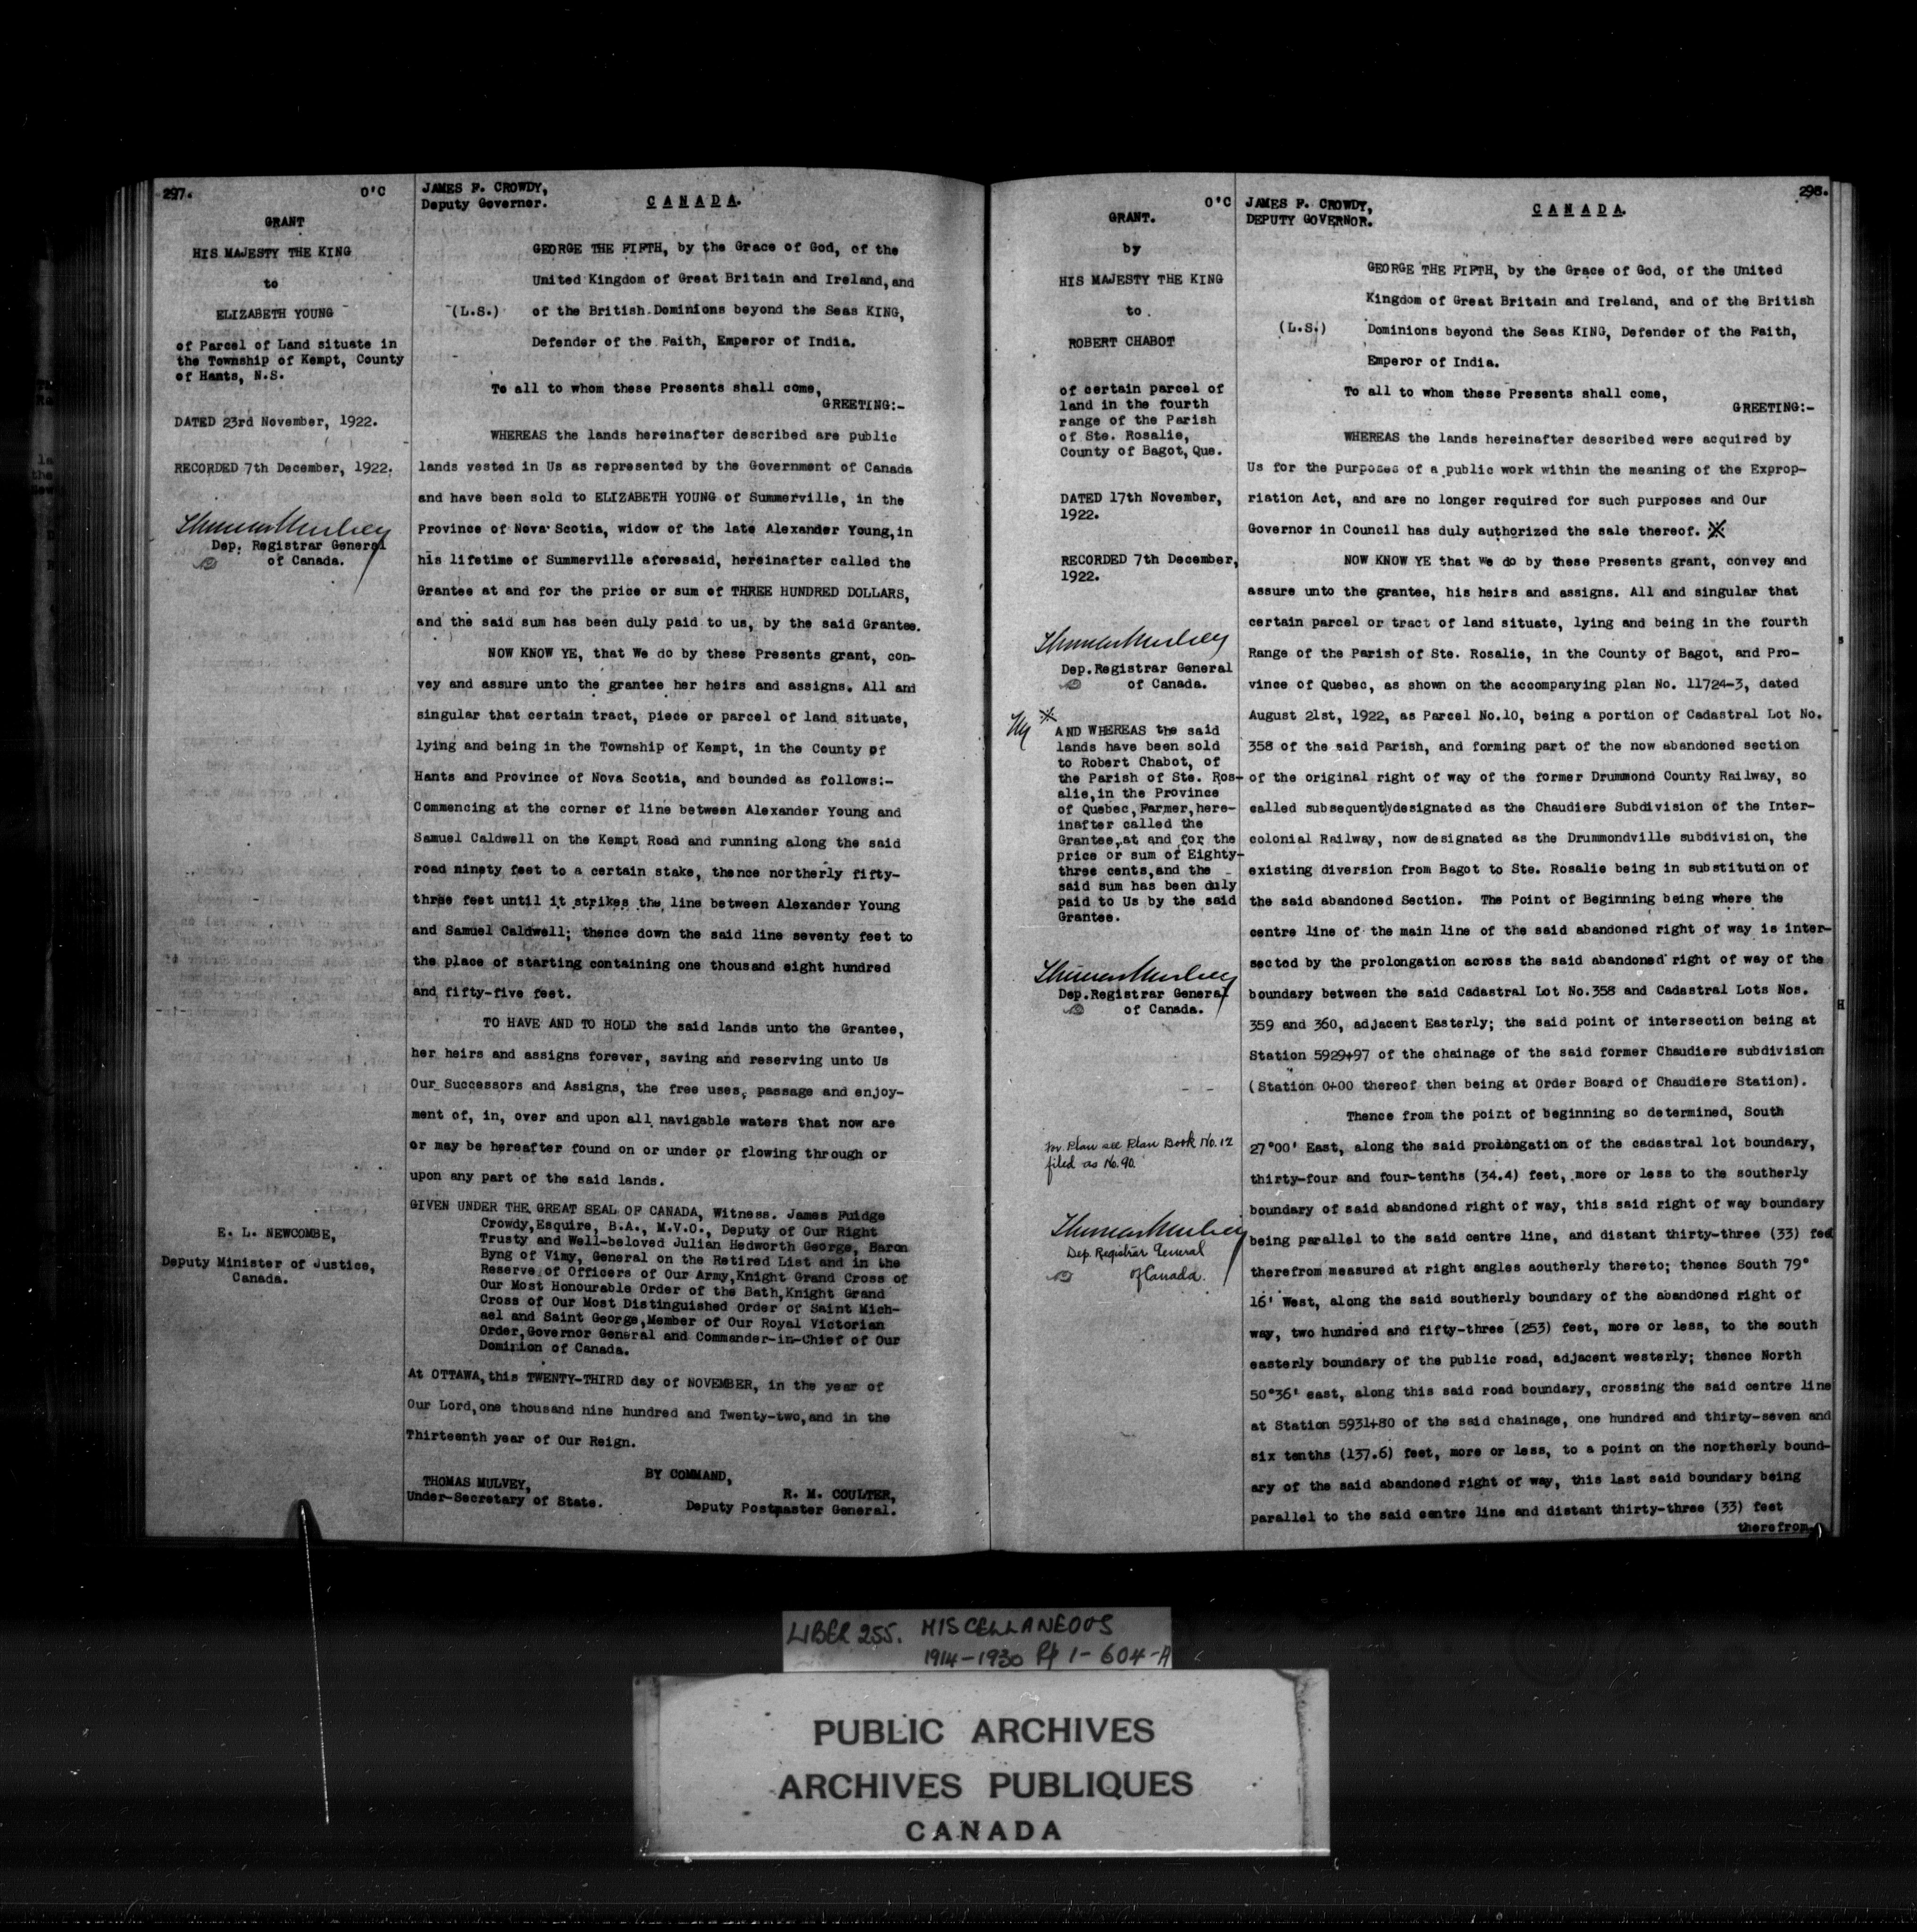 297.
O'C
GRANT
HIS MAJESTY THE KING
to
ELIZABETH YOUNG
of Parcel of Land situate in
the Township of Kempt, County
of Hants, N.S.
DATED 23rd November, 1922.
RECORDED 7th December, 1922.
Thomas Mulvey
Dep. Registrar General
of Canada.
E. L. NEWCOMBE,
Deputy Minister of Justice,
Canada.
JAMES F. CROWDY,
Deputy Governor.
CANADA.
GEORGE THE FIFTH, by the Grace of God, of the
United Kingdom of Great Britain and Ireland, and
(L.S.) of the British Dominions beyond the Seas KING,
Defender of the Faith, Emperor of India.
To all to whom these Presents shall come,
GREETING:-
WHEREAS the lands hereinafter described are public
lands vested in Us as represented by the Government of Canada
and have been sold to ELIZABETH YOUNG of Summerville, in the
Province of Nova Scotia, widow of the late Alexander Young, in
his lifetime of Summerville aforesaid, hereinafter called the
Grantee at and for the price or sum of THREE HUNDRED DOLLARS,
and the said sum has been duly paid to us, by the said Grantee.
NOW KNOW YE, that We do by these Presents grant, con-
vey and assure unto the grantee her heirs and assigns. All and
singular that certain tract, piece or parcel of land situate,
lying and being in the Township of Kempt, in the County of
Hants and Province of Nova Scotia, and bounded as follows:-
Commencing at the corner of line between Alexander Young and
Samuel Caldwell on the Kempt Road and running along the said
road ninety feet to a certain stake, thence northerly fifty-
three feet until it strikes the line between Alexander Young
and Samuel Caldwell; thence down the said line seventy feet to
the place of starting containing one thousand eight hundred
and fifty-five feet.
TO HAVE AND TO HOLD the said lands unto the Grantee,
her heirs and assigns forever, saving and reserving unto Us
Our Successors and Assigns, the free uses, passage and enjoy-
ment of, in, over and upon all navigable waters that now are
or may be hereafter found on or under or flowing through or
upon any part of the said lands.
GIVEN UNDER THE GREAT SEAL OF CANADA, Witness. James Fuidge
Crowdy, Esquire, B.A., M.V.O., Deputy of Our Right
Trusty and Well-beloved Julian Hedworth George, Baron
Byng of Vimy, General on the Retired List and in the
Reserve of Officers of Our Army, Knight Grand Cross of
Our Most Honourable Order of the Bath, Knight Grand
Cross of Our Most Distinguished Order of Saint Mich-
ael and Saint George, Member of Our Royal Victorian
Order, Governor General and Commander-in-Chief of Our
Dominion of Canada.
At OTTAWA, this TWENTY-THIRD day of NOVEMBER, in the year of
Our Lord, one thousand nine hundred and Twenty-two, and in the
Thirteenth year of Our Reign.
BY COMMAND,
THOMAS MULVEY,
Under-Secretary of State.
R. M. COULTER,
Deputy Postmaster General.
O'C
GRANT.
by
HIS MAJESTY THE KING
to
ROBERT CHABOT
of certain parcel of
land in the fourth
range of the Parish
of Ste. Rosalie,
County of Bagot, Que.
DATED 17th November,
1922.
RECORDED 7th December,
1922.
Thomas Mulvey
Dep. Registrar General
of Canada.
※
AND WHEREAS the said
lands have been sold
to Robert Chabot, of
the Parish of Ste. Ros-
alie, in the Province
of Quebec, Farmer, here-
inafter called the
Grantee, at and for the
price or sum of Eighty-
three cents, and the
said sum has been duly
paid to Us by the said
Grantee.
Thomas Mulvey
Dep. Registrar General
of Canada.
for Plan see Plan Book No. 12
filed as No. 90.
Thomas Mulvey
Dep. Registrar General
of Canada.
298.
JAMES F. CROWDY,
DEPUTY GOVERNOR.
CANADA.
GEORGE THE FIFTH, by the Grace of God, of the United
Kingdom of Great Britain and Ireland, and of the British
(L.S.) Dominions beyond the Seas KING, Defender of the Faith,
Emperor of India.
To all to whom these Presents shall come,
GREETING:-
WHEREAS the lands hereinafter described were acquired by
Us for the purposes of a public work within the meaning of the Exprop-
riation Act, and are no longer required for such purposes and Our
Governor in Council has duly authorized the sale thereof. ※
NOW KNOW YE that We do by these Presents grant, convey and
assure unto the grantee, his heirs and assigns. All and singular that
certain parcel or tract of land situate, lying and being in the fourth
Range of the Parish of Ste. Rosalie, in the County of Bagot, and Pro-
vince of Quebec, as shown on the accompanying plan No. 11724-3, dated
August 21st, 1922, as Parcel No.10, being a portion of Cadastral Lot No.
358 of the said Parish, and forming part of the now abandoned section
of the original right of way of the former Drummond County Railway, so
called subsequently designated as the Chaudiere Subdivision of the Inter-
colonial Railway, now designated as the Drummondville subdivision, the
existing diversion from Bagot to Ste. Rosalie being in substitution of
the said abandoned Section. The Point of Beginning being where the
centre line of the main line of the said abandoned right of way is inter-
sected by the prolongation across the said abandoned right of way of the
boundary between the said Cadastral Lot No.358 and Cadastral Lots Nos.
359 and 360, adjacent Easterly; the said point of intersection being at
Station 5929+97 of the chainage of the said former Chaudiere subdivision
(Station 0+00 thereof then being at Order Board of Chaudiere Station).
Thence from the point of beginning so determined, South
27°00' East, along the said prolongation of the cadastral lot boundary,
thirty-four and four-tenths (34.4) feet, more or less to the southerly
boundary of said abandoned right of way, this said right of way boundary
being parallel to the said centre line, and distant thirty-three (33) feet
therefrom measured at right angles aoutherly thereto; thence South 79°
16' West, along the said southerly boundary of the abandoned right of
way, two hundred and fifty-three (253) feet, more or less, to the south
easterly boundary of the public road, adjacent westerly; thence North
50°36' east, along this said road boundary, crossing the said centre line
at Station 5931+80 of the said chainage, one hundred and thirty-seven and
six tenths (137.6) feet, more or less, to a point on the northerly bound-
ary of the said abandoned right of way, this last said boundary being
parallel to the said centre line and distant thirty-three (33) feet
therefrom
LIBER 255. MISCELLANEOUS
1914-1930 Pp 1-604-A
PUBLIC ARCHIVES
ARCHIVES PUBLIQUES
CANADA